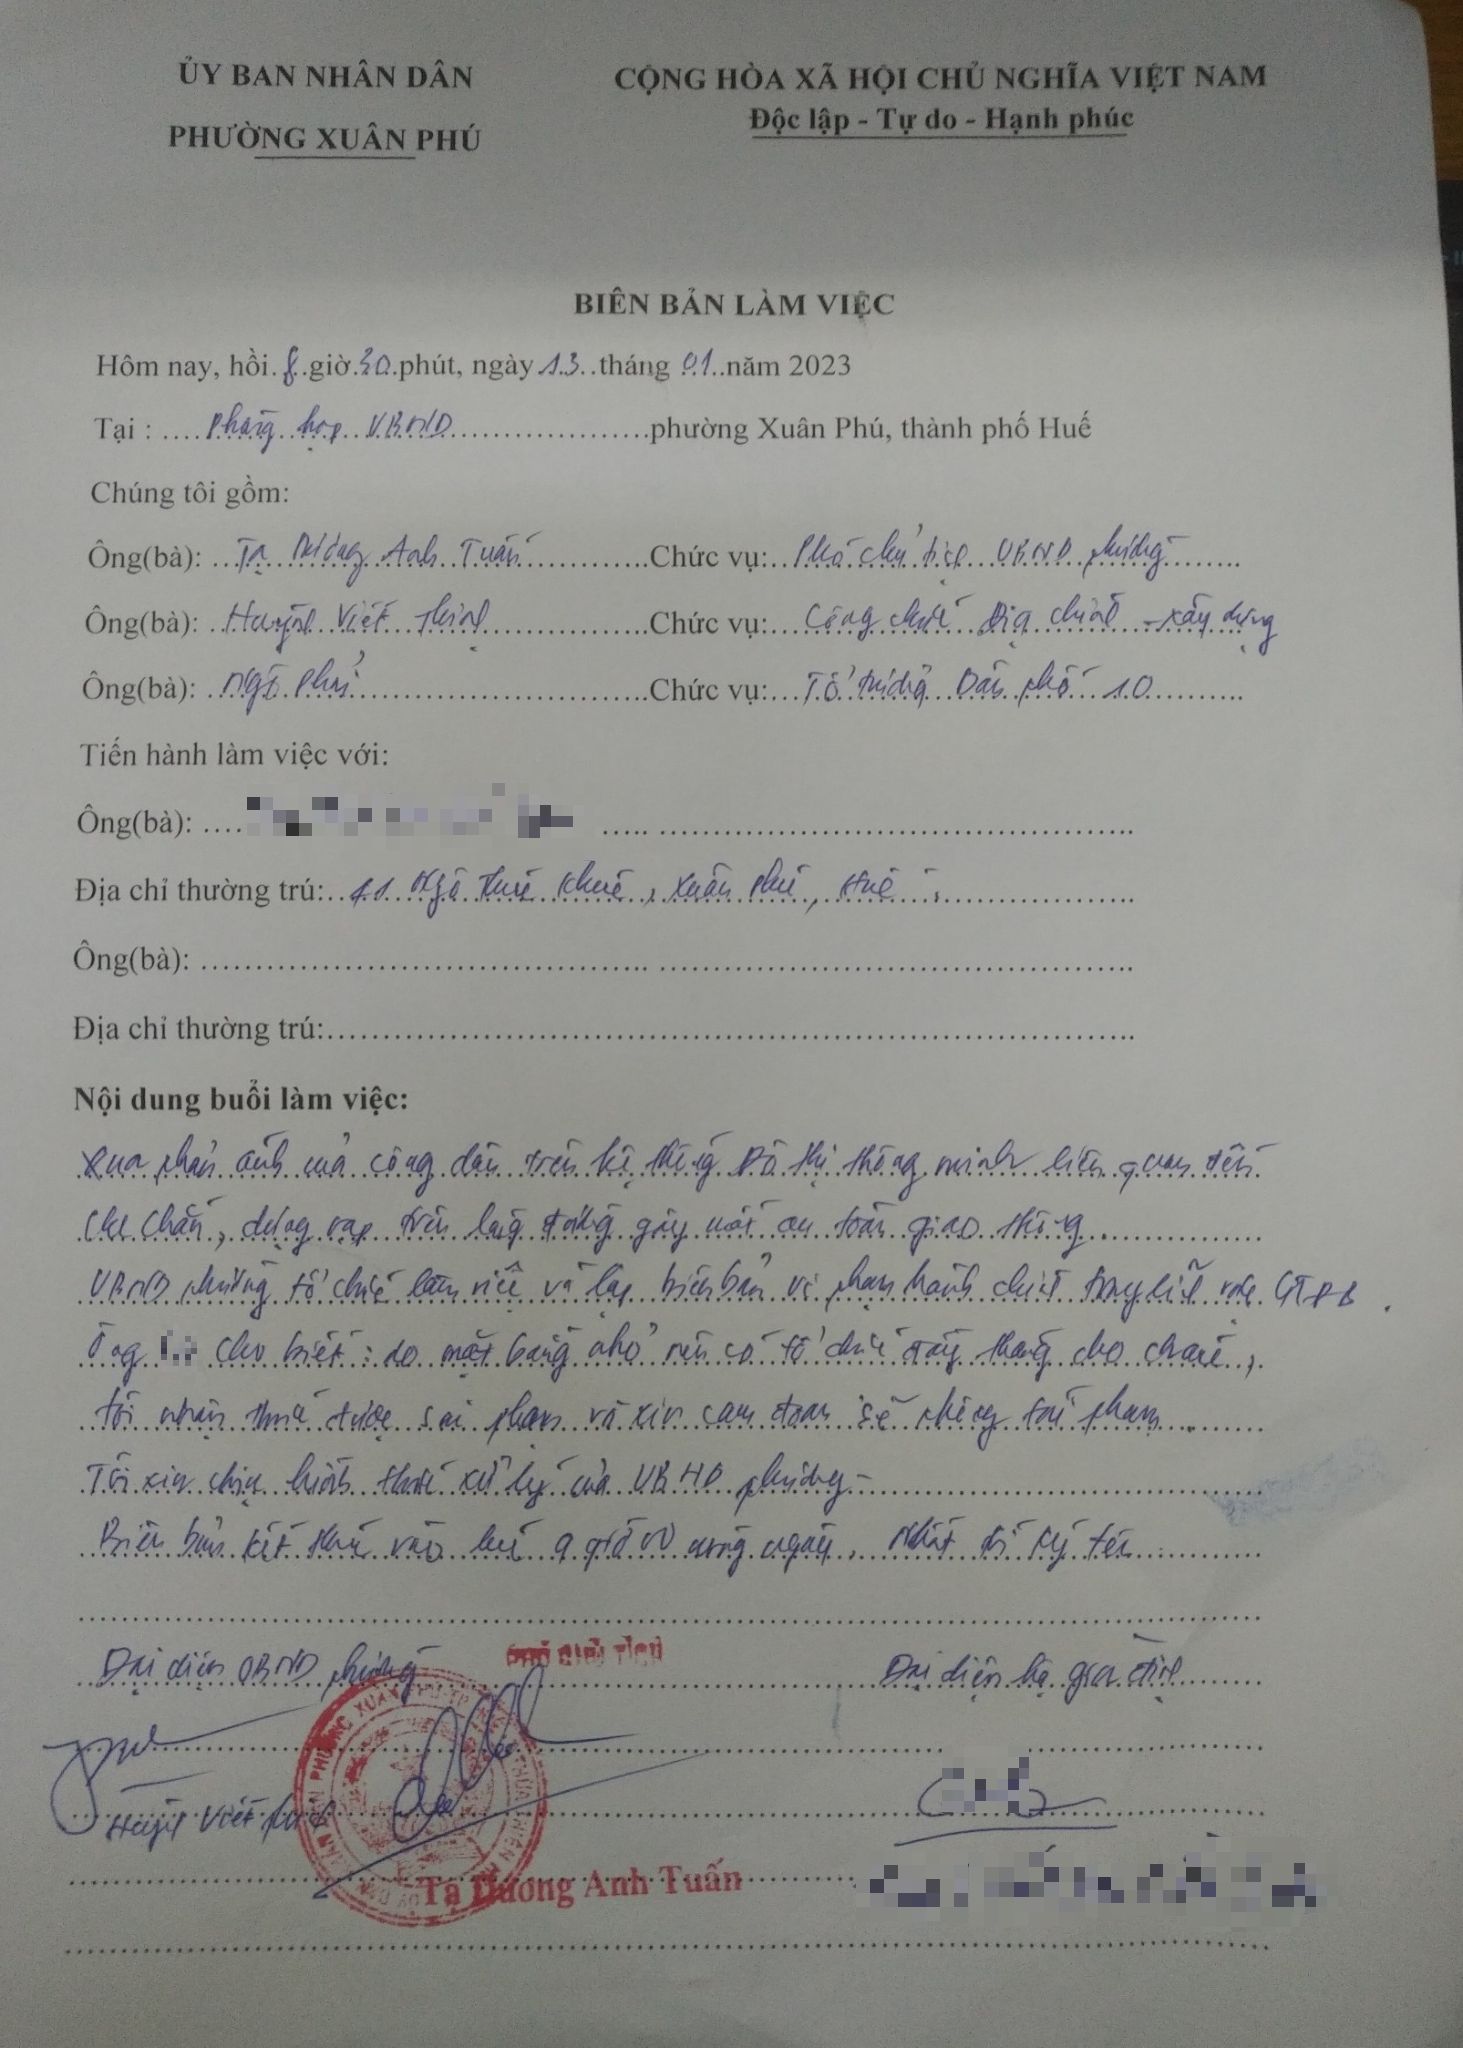 ỦY BAN NHÂN DÂN
PHƯỜNG XUÂN PHÚ
CỘNG HÒA XÃ HỘI CHỦ NGHĨA VIỆT NAM
Độc lập - Tự do - Hạnh phúc
BIÊN BẢN LÀM VIỆC
Hôm nay, hồi 8 giờ 30 phút, ngày 13 tháng 01 năm 2023
Tại : Phòng họp UBND phường Xuân Phú, thành phố Huế
Chúng tôi gồm:
Ông(bà): Tạ Dương Anh Tuấn Chức vụ: Phó chủ tịch UBND phường
Ông(bà): Huỳnh Viết Chức vụ: Công chức Địa chính - xây dựng
Ông(bà): Ngô Chức vụ: Tổ trưởng Dân phố 10
Tiến hành làm việc với:
Ông(bà):
Địa chỉ thường trú: 11 Ngô Thế Xuân Phú, Huế
Ông(bà):
Địa chỉ thường trú:
Nội dung buổi làm việc:
Qua phản ánh của công dân trên hệ thống Đô thị thông minh liên quan đến
che chắn, dựng rạp trên lòng đường gây mất an toàn giao thông
UBND phường tổ chức làm việc và lập biên bản vi phạm hành chính trong lĩnh vực GTĐB.
Ông cho biết: do mặt bằng nhỏ nên có tổ chức cho
tôi nhận thức được sai phạm và xin cam đoan sẽ không tái phạm
Tôi xin chịu hình thức xử lý của UBND phường
Biên bản kết thúc vào lúc 9 giờ 00 cùng ngày, nhất trí ký tên
Đại diện UBND phường
PHÓ CHỦ TỊCH
Đại diện hộ gia đình
Huỳnh Viết
Tạ Dương Anh Tuấn